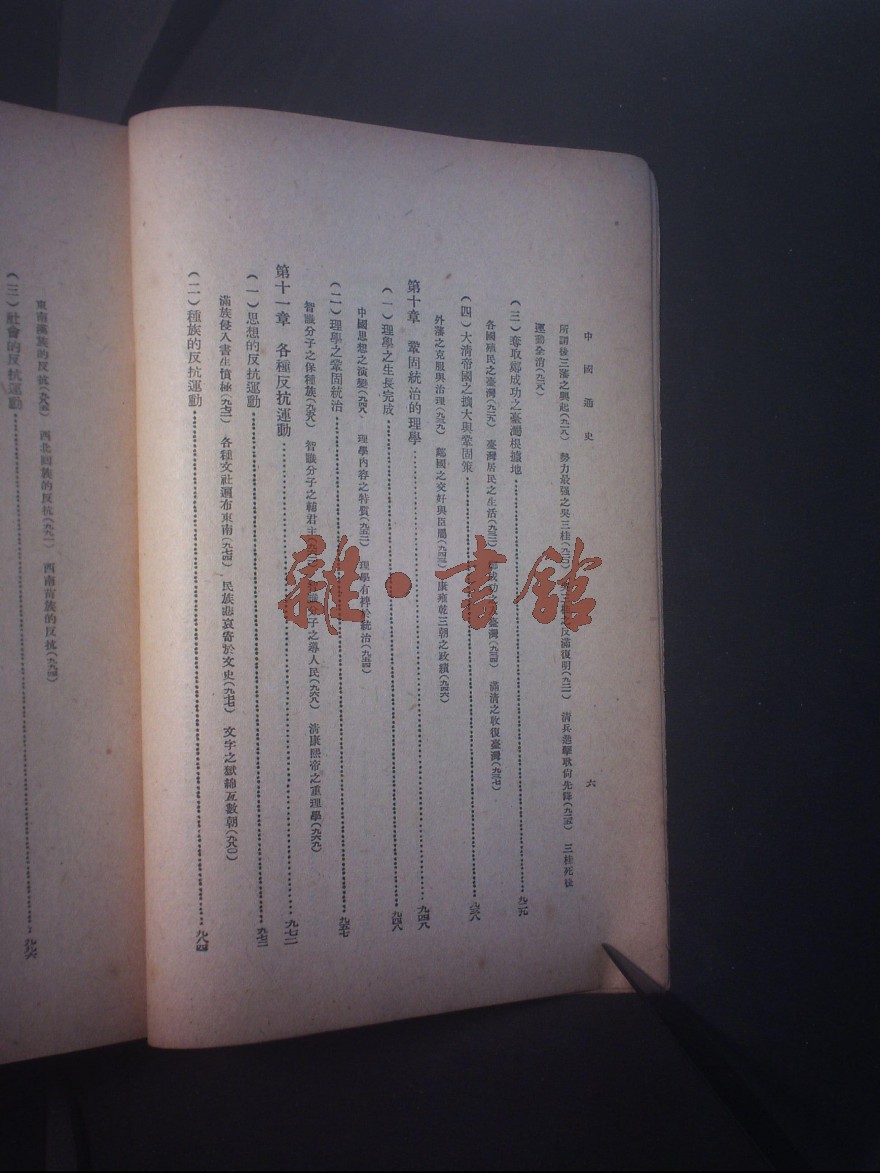 中國通史
六
所謂後三藩之興起(九一八) 勢力最强之吳三桂(九二〇) 反滿復明(九二一) 清兵進擊取尙先降(九二五) 三桂死後
運動全消(九二八)
(三)奪取鄭成功之臺灣根據地……九二九
各國殖民之臺灣(九二九) 臺灣居民之生活(九三二) 臺灣(九三四) 滿清之收復臺灣(九三七)
(四)大淸帝國之擴大與鞏固策……九三八
外藩之克服與治理(九三九) 鄰國之交好與臣屬(九四三) 康雍乾三朝之政蹟(九四六)
第十章 鞏固統治的理學……九四八
(一)理學之生長完成……九四八
中國思想之演變(九四八) 理學內容之特質(九五二) 理學有裨於統治(九五四)
(二)理學之鞏固統治……九五七
智識分子之保種族(九五八) 智識分子之輔君主 智識分子之導人民(九六八) 淸康熙帝之重理學(九六九)
第十一章 各種反抗運動……九七二
(一)思想的反抗運動……九七二
滿族侵入書生憤極(九七二) 各種文社遍布東南(九七四) 民族悲哀寄於文史(九七七) 文字之獄綿亙數朝(九八〇)
(二)種族的反抗運動……九八四
東南漢族的反抗 西北回族的反抗(九九一) 西南苗族的反抗(九九四)
(三)社會的反抗運動……九九六
雜·書館